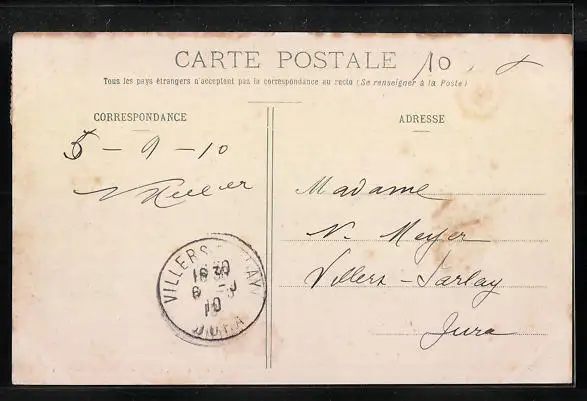 CARTE POSTALE 10
Tous les pays étrangers n'acceptent pas la correspondance au recto (Se renseigner à la Poste)
CORRESPONDANCE
ADRESSE
5 - 9 - 10
Madame
N. Meyer
Villers-Farlay
Jura
VILLERS FARLAY
JURA